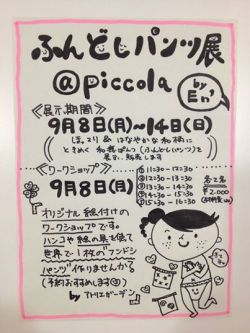 ふんどしパンツ展
@piccola
by En'
≪展示期間≫
9月8日(月)~14日(日)
ほっこり & はなやかな和柄に
ときめく 和装ぱんつ(ふんどしパンツ)を
展示、販売します
≪ワークショップ≫
9月8日(月)
①11:30-12:30
②12:30-13:30
③13:30-14:30
④14:30-15:30
⑤15:30-16:30
各2名
¥2,000
オリジナル絵付けの
ワークショップです。
ハンコや絵の具を使て
世界で1枚の"フンドシ
パンツ"作りませんか
(予約おすすめします)
by アトリエガーデン